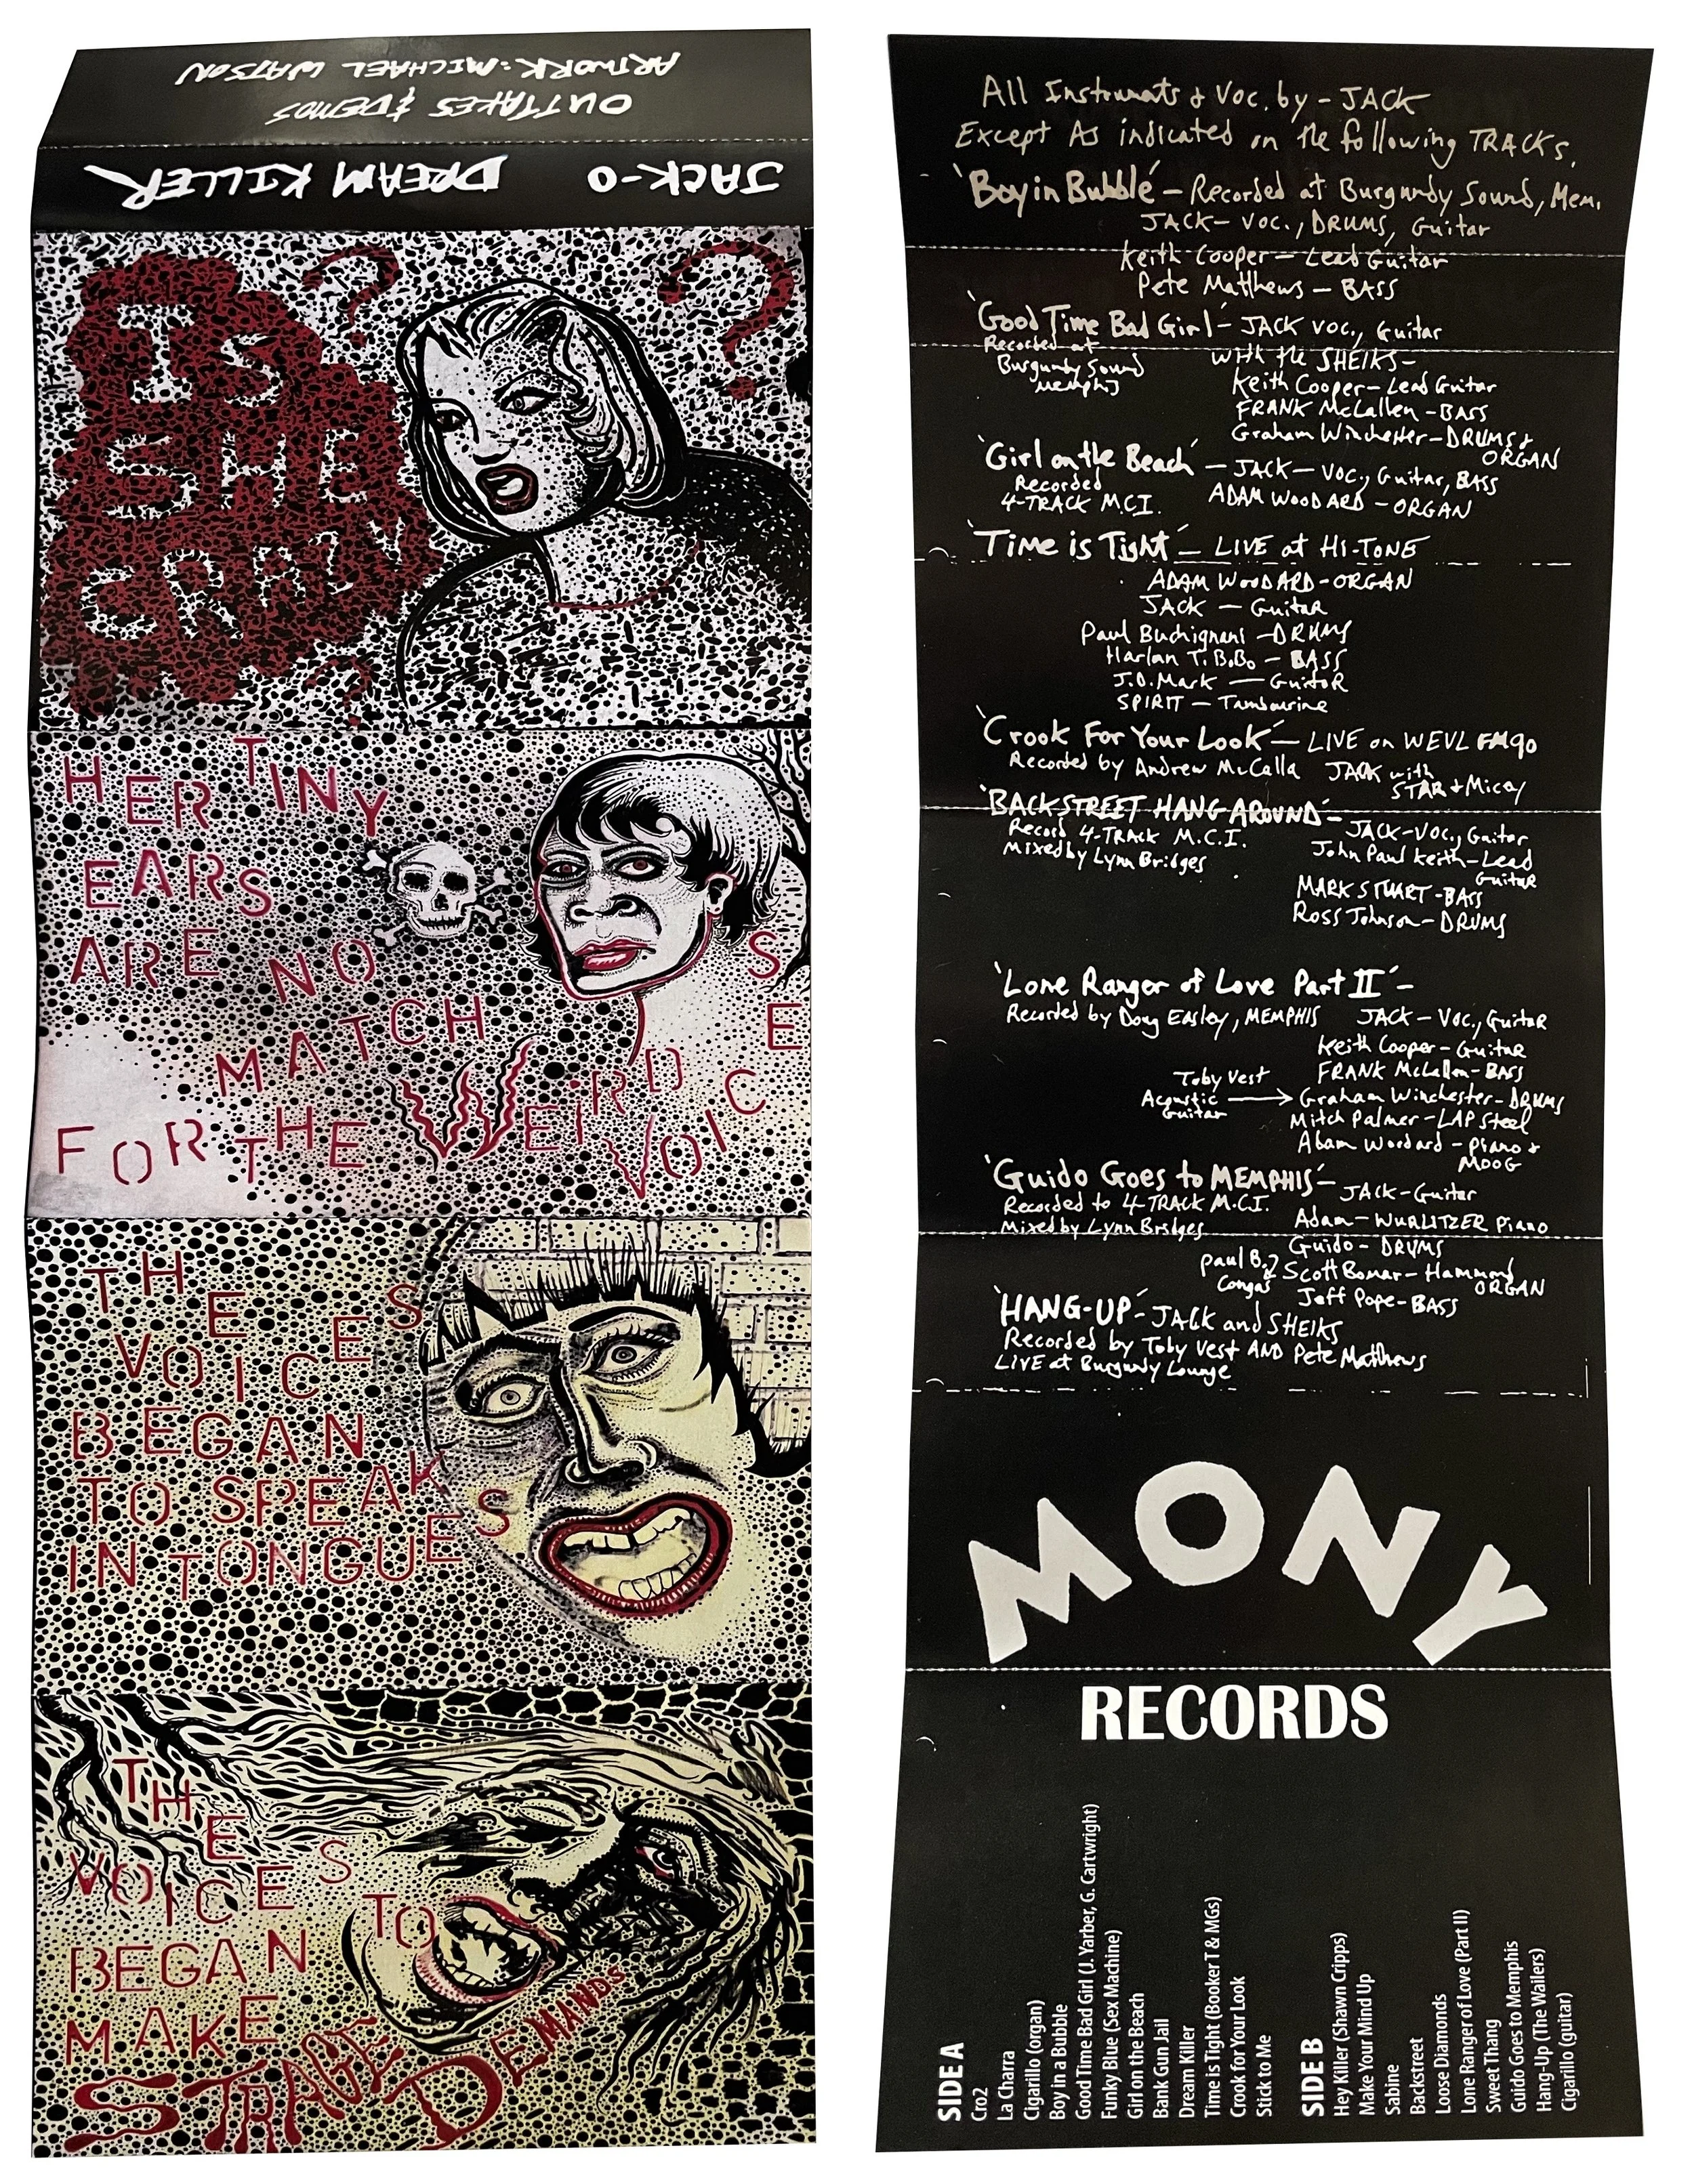 OUTTAKES & DEMOS
ARTWORK: MICHAEL WATSON
JACK-O DREAM KILLER
IS
SHE
CRAZY
? ? ?
HER TINY
EARS
ARE NO
MATCH
FOR THE WEIRD VOICES
THE
VOICES
BEGAN
TO SPEAK
IN TONGUES
THE
VOICES
BEGAN TO
MAKE
STRANGE
DEMANDS
All Instruments & Voc. by - JACK
Except As indicated on the following TRACKS.
'Boy in Bubble' - Recorded at Burgundy Sound, Mem.
JACK - VOC., DRUMS, Guitar
Keith Cooper - Lead Guitar
Pete Matthews - BASS
'Good Time Bad Girl' - JACK VOC., Guitar
Recorded at
Burgundy Sound
Memphis
with the SHEIKS -
Keith Cooper - Lead Guitar
FRANK McLallen - BASS
Graham Winchester - DRUMS &
ORGAN
'Girl on the Beach' - JACK - VOC., Guitar, BASS
Recorded
4-TRACK M.C.I.
ADAM WOODARD - ORGAN
'Time is Tight' - LIVE at HI-TONE
ADAM WOODARD - ORGAN
JACK - Guitar
Paul Buchignani - DRUMS
Harlan T. BoBo - BASS
J.D. Mark - GuitaR
SPIRIT - Tambourine
'Crook For Your Look' - LIVE on WEVL FM90
Recorded by Andrew McCalla
JACK with
STAR & Micey
'BACKSTREET HANG AROUND' -
Record 4-TRACK M.C.I.
Mixed by Lynn Bridges
JACK - VOC., Guitar
John Paul Keith - Lead
Guitar
MARK STUART - BASS
Ross Johnson - DRUMS
'Lone Ranger of Love Part II' -
Recorded by Doug Easley, MEMPHIS
JACK - VOC., Guitar
Keith Cooper - Guitar
FRANK McLallen - BASS
Toby Vest
Acoustic
Guitar
Graham Winchester - DRUMS
Mitch Palmer - LAP Steel
Adam Woodard - Piano &
MOOG
'Guido Goes to MEMPHIS' -
Recorded to 4-TRACK M.C.I.
Mixed by Lynn Bridges
JACK - Guitar
Adam - WURLITZER Piano
Guido - DRUMS
Paul B.
Congas
Scott Bomar - Hammond
ORGAN
Jeff Pope - BASS
'HANG-UP' - JACK and SHEIKS
Recorded by Toby Vest AND Pete Matthews
LIVE at Burgundy Lounge
MONY
RECORDS
SIDE A
Cro2
La Charra
Cigarillo (organ)
Boy in a Bubble
Good Time Bad Girl (J. Yarber, G. Cartwright)
Funky Blue (Sex Machine)
Girl on the Beach
Bank Gun Jail
Dream Killer
Time is Tight (Booker T & MGs)
Crook for Your Look
Stick to Me
SIDE B
Hey Killer (Shawn Cripps)
Make Your Mind Up
Sabine
Backstreet
Loose Diamonds
Lone Ranger of Love (Part II)
Sweet Thang
Guido Goes to Memphis
Hang-Up (The Wailers)
Cigarillo (guitar)